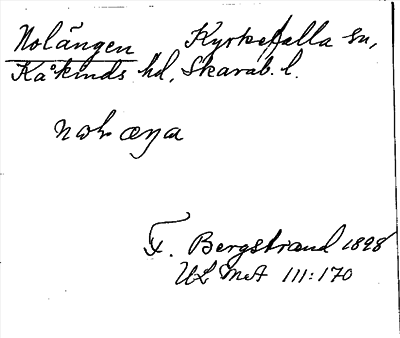 Nolängen Kyrkefalla sn,
Kåkinds hd, Skarab. l.
F. Bergstrand 1898
UL MA III:170